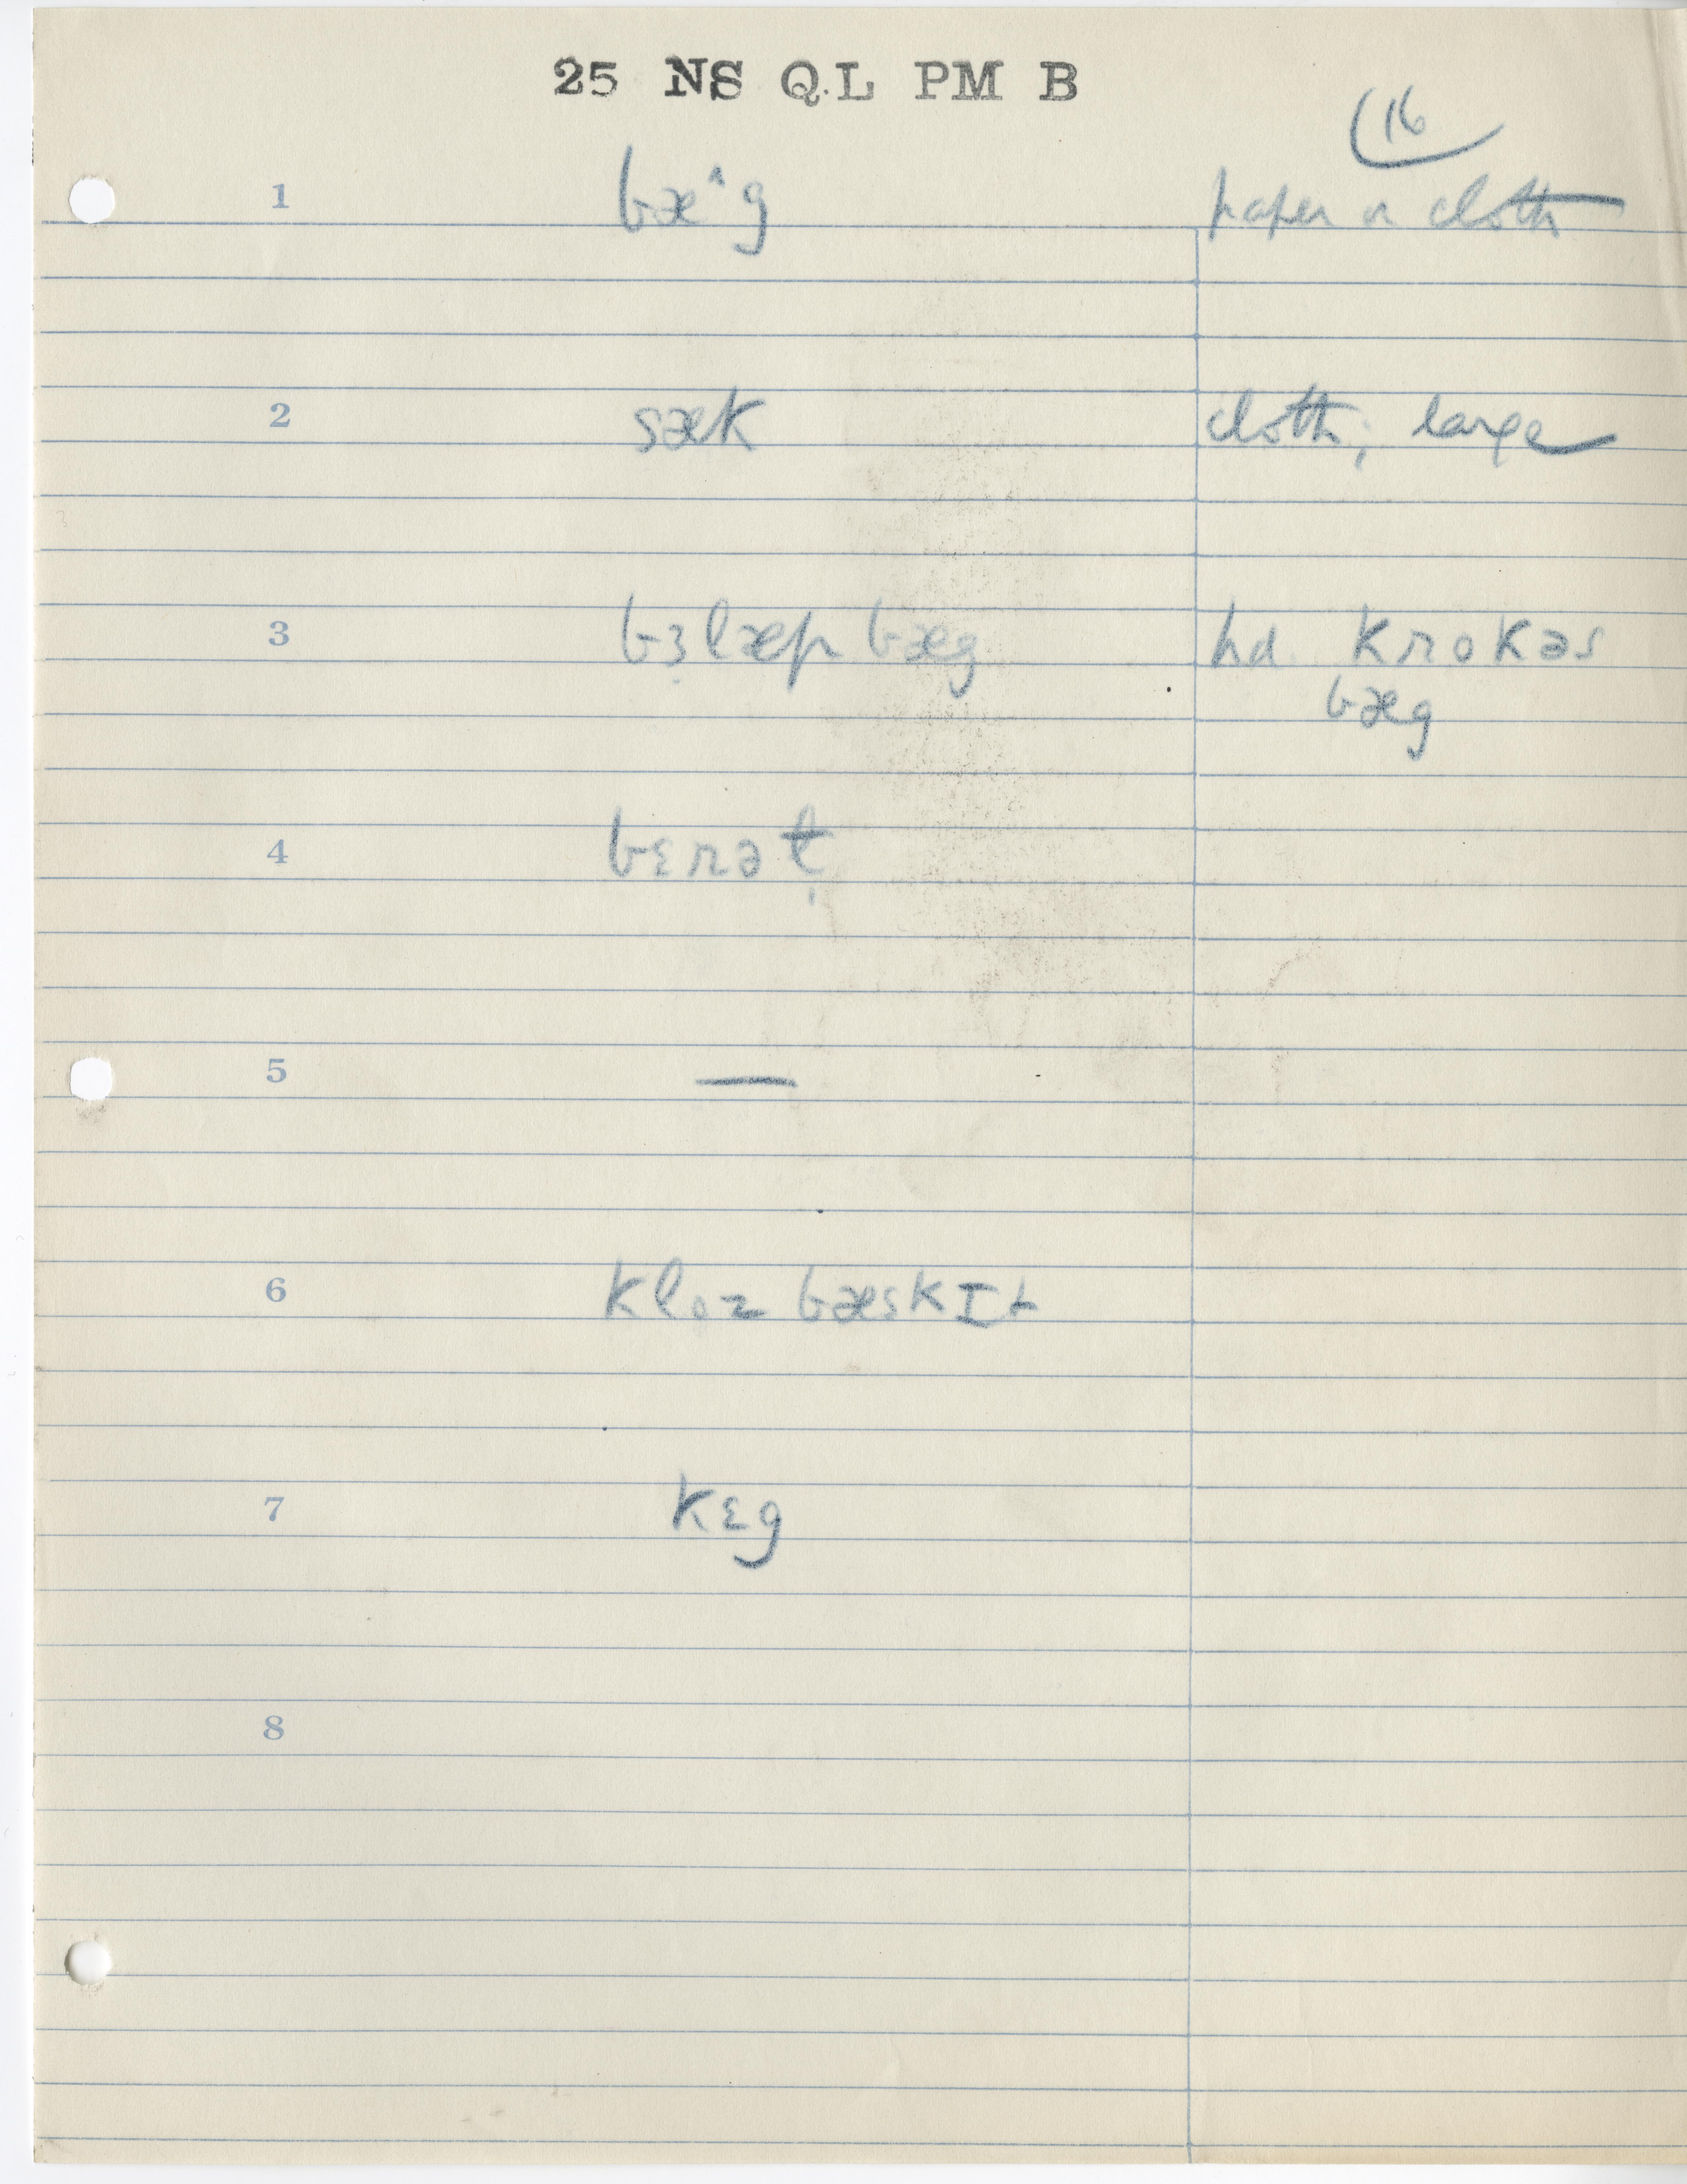 25 NS QL PM B
16
1 bæ^g paper or cloth
2 sæk cloth, large
3 bɜ̣læp bæg hd. krokəs
bæg
4 bɛrəṭ
5 —
6 kloz bæskɪt
7 kɛg
8